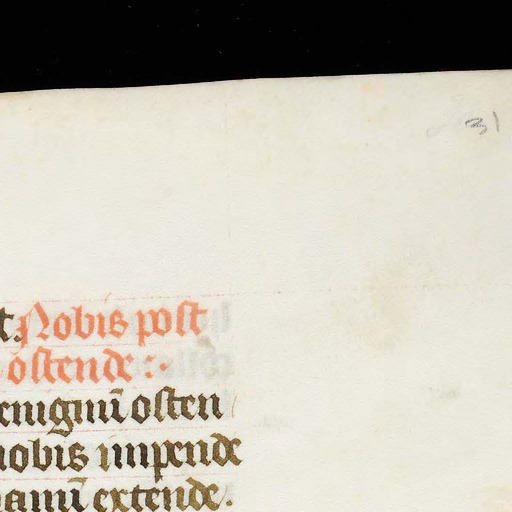 31
t. Nobis post
ostende :·
enigmī osten
nobis impende
amī extende.